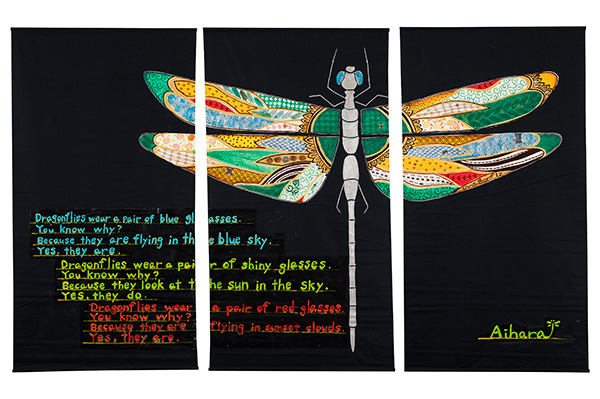 Dragonflies wear a pair of blue glasses.
You know why?
Because they are flying in the blue sky.
Yes, they are.
Dragonflies wear a pair of shiny glasses.
You know why?
Because they look at the sun in the sky.
Yes, they do.
Dragonflies wear a pair of red glasses.
You know why?
Because they are flying in sunset clouds.
Yes, they are.
Aihara